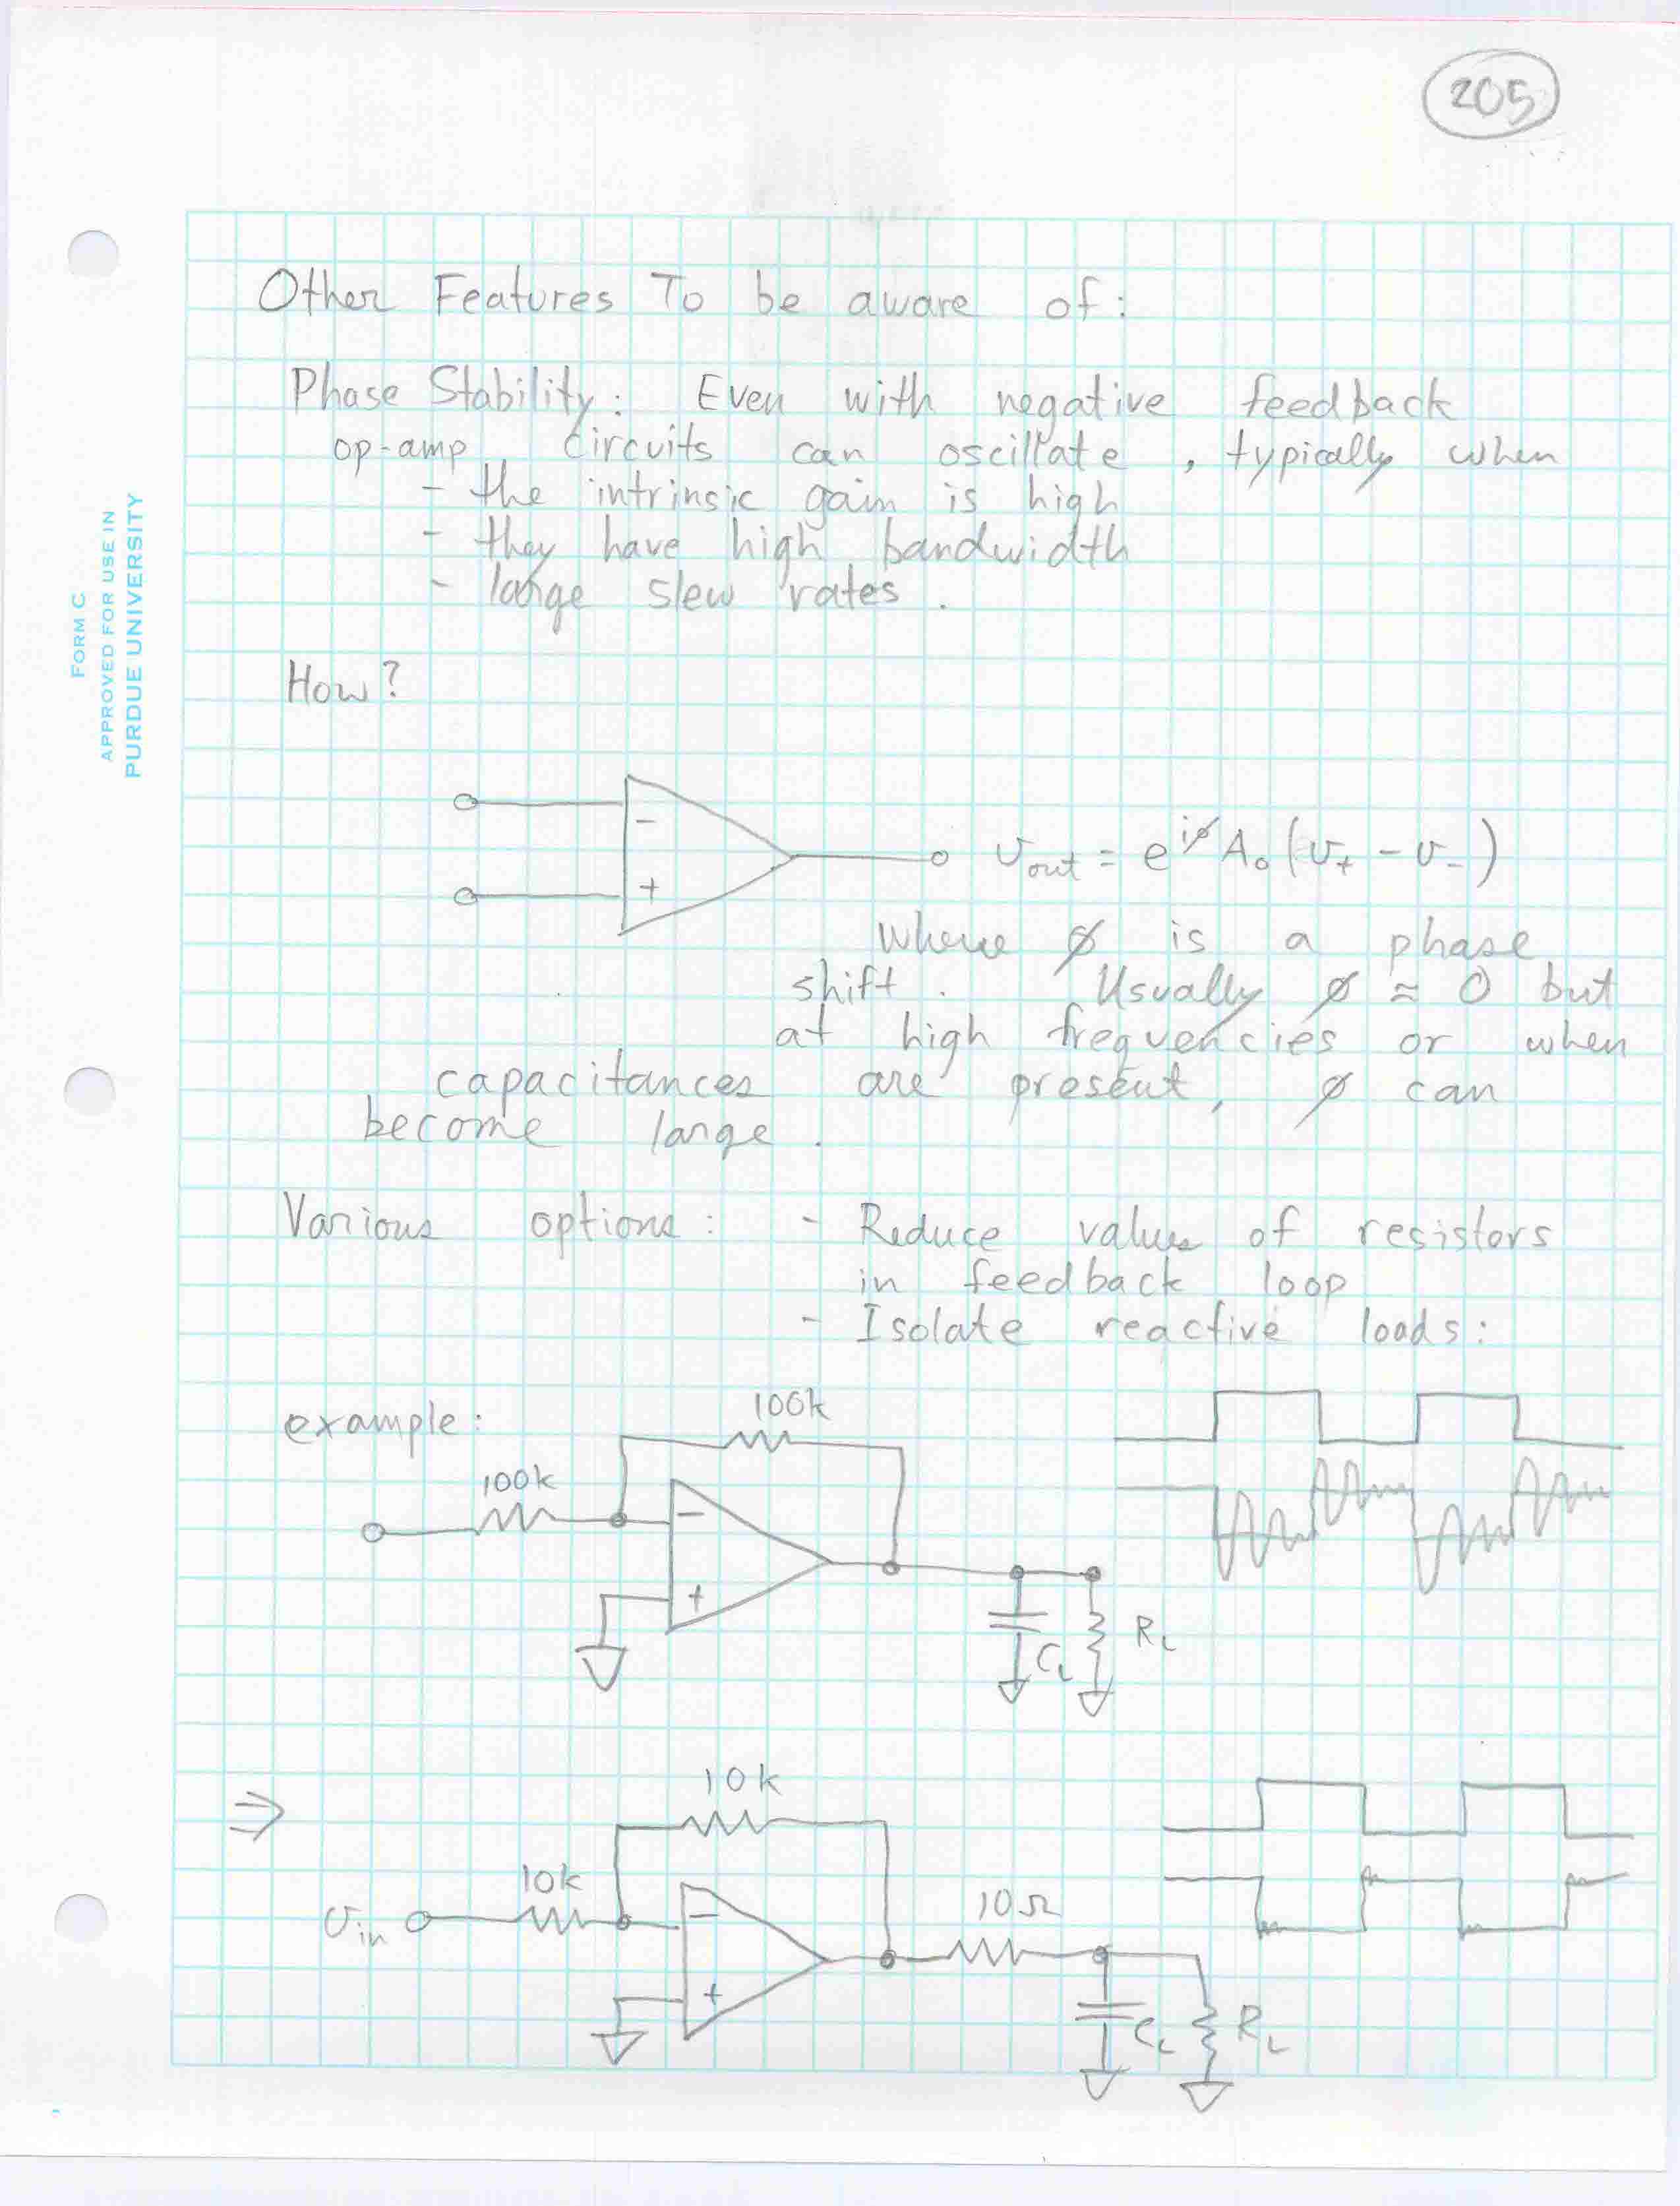 205
FORM C
APPROVED FOR USE IN
PURDUE UNIVERSITY
Other Features To be aware of:
Phase Stability: Even with negative feedback
op-amp circuits can oscillate, typically when
- the intrinsic gain is high
- they have high bandwidth
- large slew rates.
How?
−
+
υout = e^iø A₀ (υ₊ − υ₋)
where ø is a phase
shift. Usually ø ≈ 0 but
at high frequencies or when
capacitances are present, ø can
become large.
Various options: - Reduce values of resistors
in feedback loop
- Isolate reactive loads:
example:
100k
100k
−
+
CL
RL
⇒
10k
10k
υin
−
+
10Ω
CL
RL